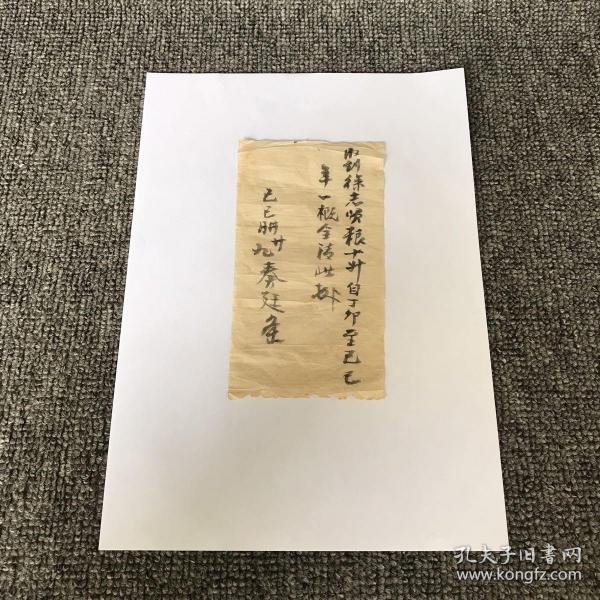 收到徐志贤粮十廾自丁卯至己巳
年一概全清此
己巳腊廿
九 秦廷
孔夫子旧書网
www.kongfz.com